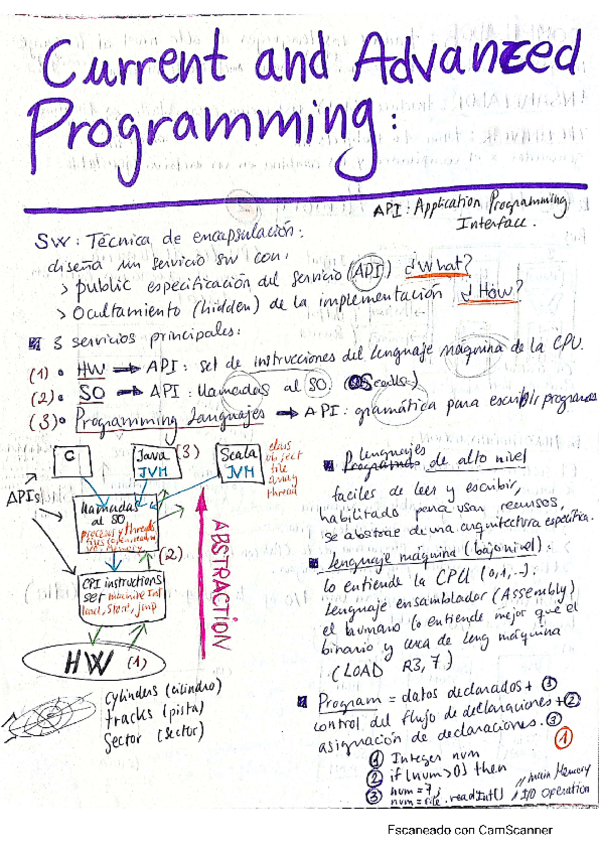 Current and Advanced
Programming:
API: Application Programming
Interface.
SW: Técnica de encapsulación:
diseña un servicio sw con:
> public especificación del servicio (API) ¿What?
> Ocultamiento (hidden) de la implementación ¿How?
3 servicios principales:
(1) • HW → API: set de instrucciones del lenguaje máquina de la CPU.
(2) • SO → API: llamadas al SO. (OS calls)
(3) • Programming Languajes → API: gramática para escribir programas
C
Java
JVM
(3)
Scala
JVM
class
object
file
array
thread
APIs
llamadas
al SO
(2)
CPI instructions
set machine Int
load, Store, jmp
HW (1)
ABSTRACTION
cylinders (cilindro)
tracks (pista)
Sector (sector)
lenguajes
de alto nivel
faciles de leer y escribir,
habilitado para usar recursos,
se abstrae de una arquitectura específica.
lenguaje máquina (bajo nivel):
lo entiende la CPU (0,1,..);
lenguaje ensamblador (Assembly)
el humano lo entiende mejor que el
binario y cerca de leng máquina
(LOAD R3, 7)
Program = datos declarados + ①
control del flujo de declaraciones + ②
asignación de declaraciones. ③
①
① Integer num
② if (num > 0) then
③ num = 7; // main Memory
num = file.readInt() // I/O operation
Escaneado con CamScanner